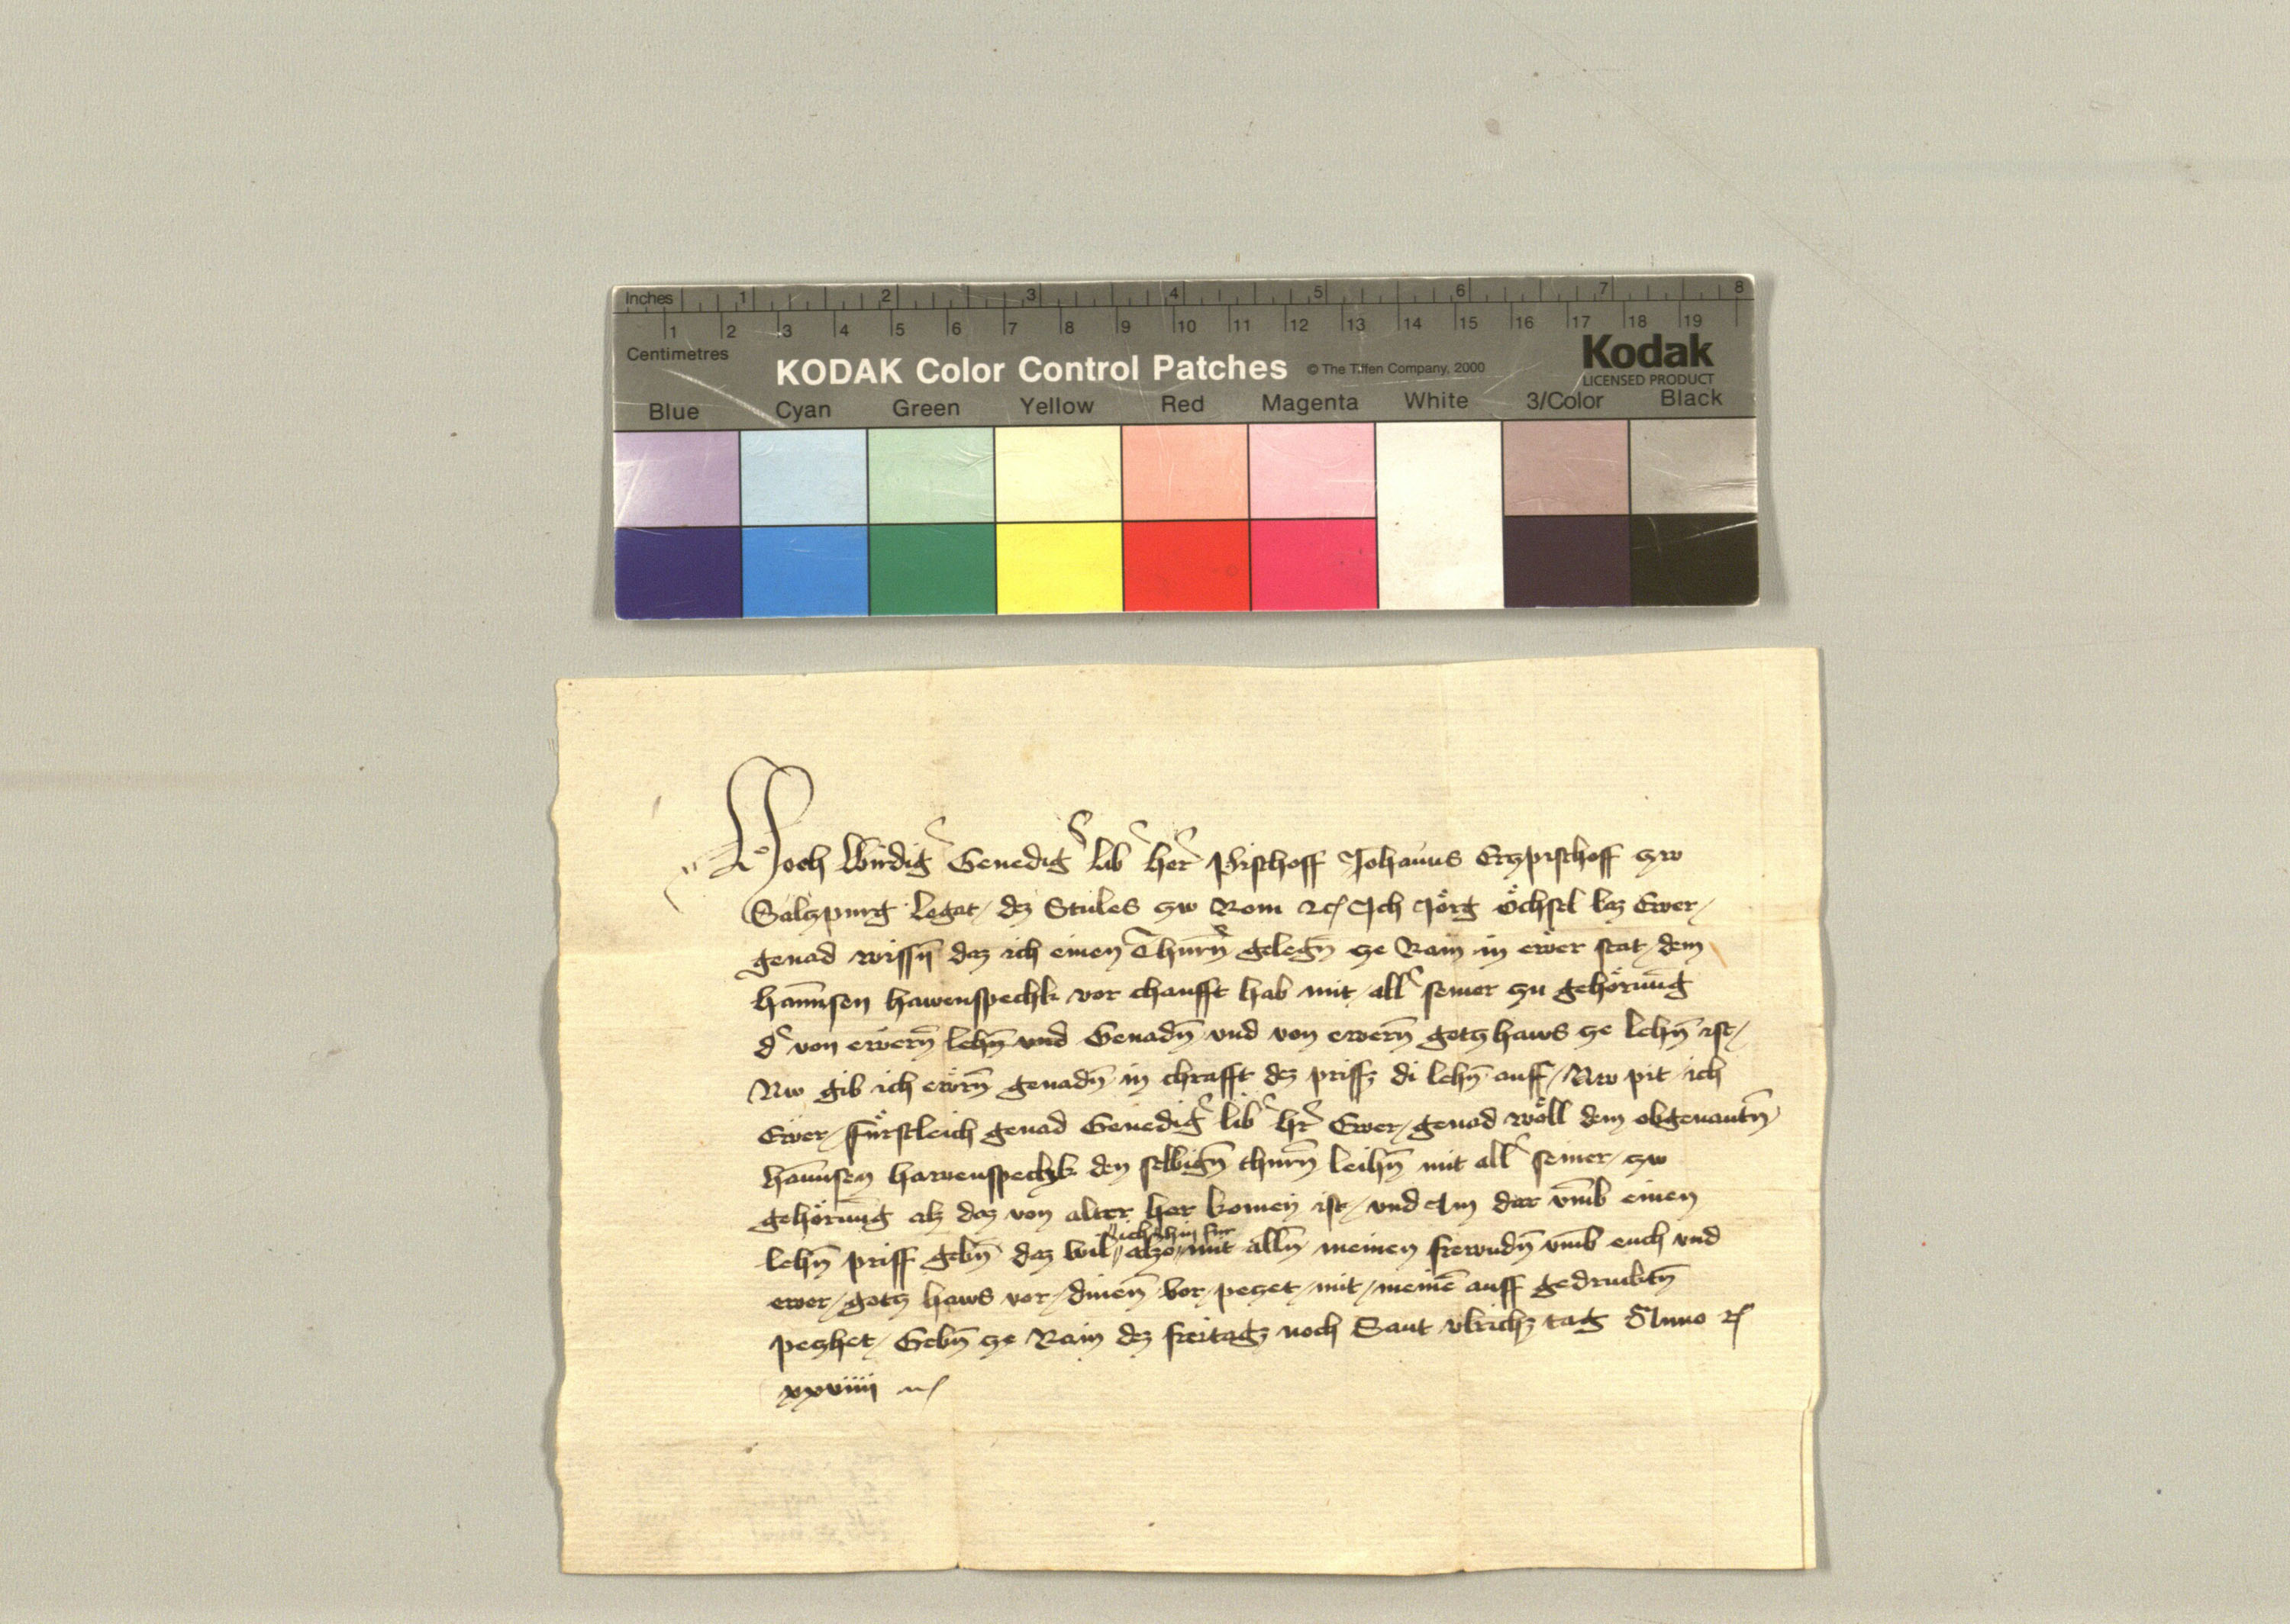 Inches 1 2 3 4 5 6 7 8
1 2 3 4 5 6 7 8 9 10 11 12 13 14 15 16 17 18 19
Centimetres
KODAK Color Control Patches © The Tiffen Company, 2000 Kodak
LICENSED PRODUCT
Blue Cyan Green Yellow Red Magenta White 3/Color Black
Hoch wirdig Genedig lib her Pischoff Johanns Erczpischoff czw
Salczpurg legat dez Stules czw Rom ꝛc Ich Jörg öchsel laz Ewer
genad wissn̄ daz ich einen Thurn̄ gelegn̄ cze Rain in ewer stat dem
hannsen hawenspechk vor chaufft hab mit all seiner czu gehörung
d von ewern̄ lehn̄ und Genadn̄ vnd von ewern̄ gotz haws cze lehn̄ ist
Nw gib ich ewrn̄ genadn̄ in chrafft dez priffz di lehn̄ auff Nw pit ich
Ewer fürstleich genad Genedig lib hr Ewer genad wöll dem obgenantn̄
hannsen hawenspechk den selbign̄ thurn̄ leihn̄ mit all seiner czw
gehörung alz daz von alter her komen ist vnd Im dar vmb einen
ich hin für
lehn̄ priff gebn̄ daz wil alzo mit alln̄ meinen frewndn̄ vmb euch vnd
ewer gotz haws vor dinen̄ vor peczet mit meinē auff gedrucktn̄
peczhet Gebn̄ cze Rain dez freitagz noch Sant vlrichz tag Anno ꝛc
xxviiii